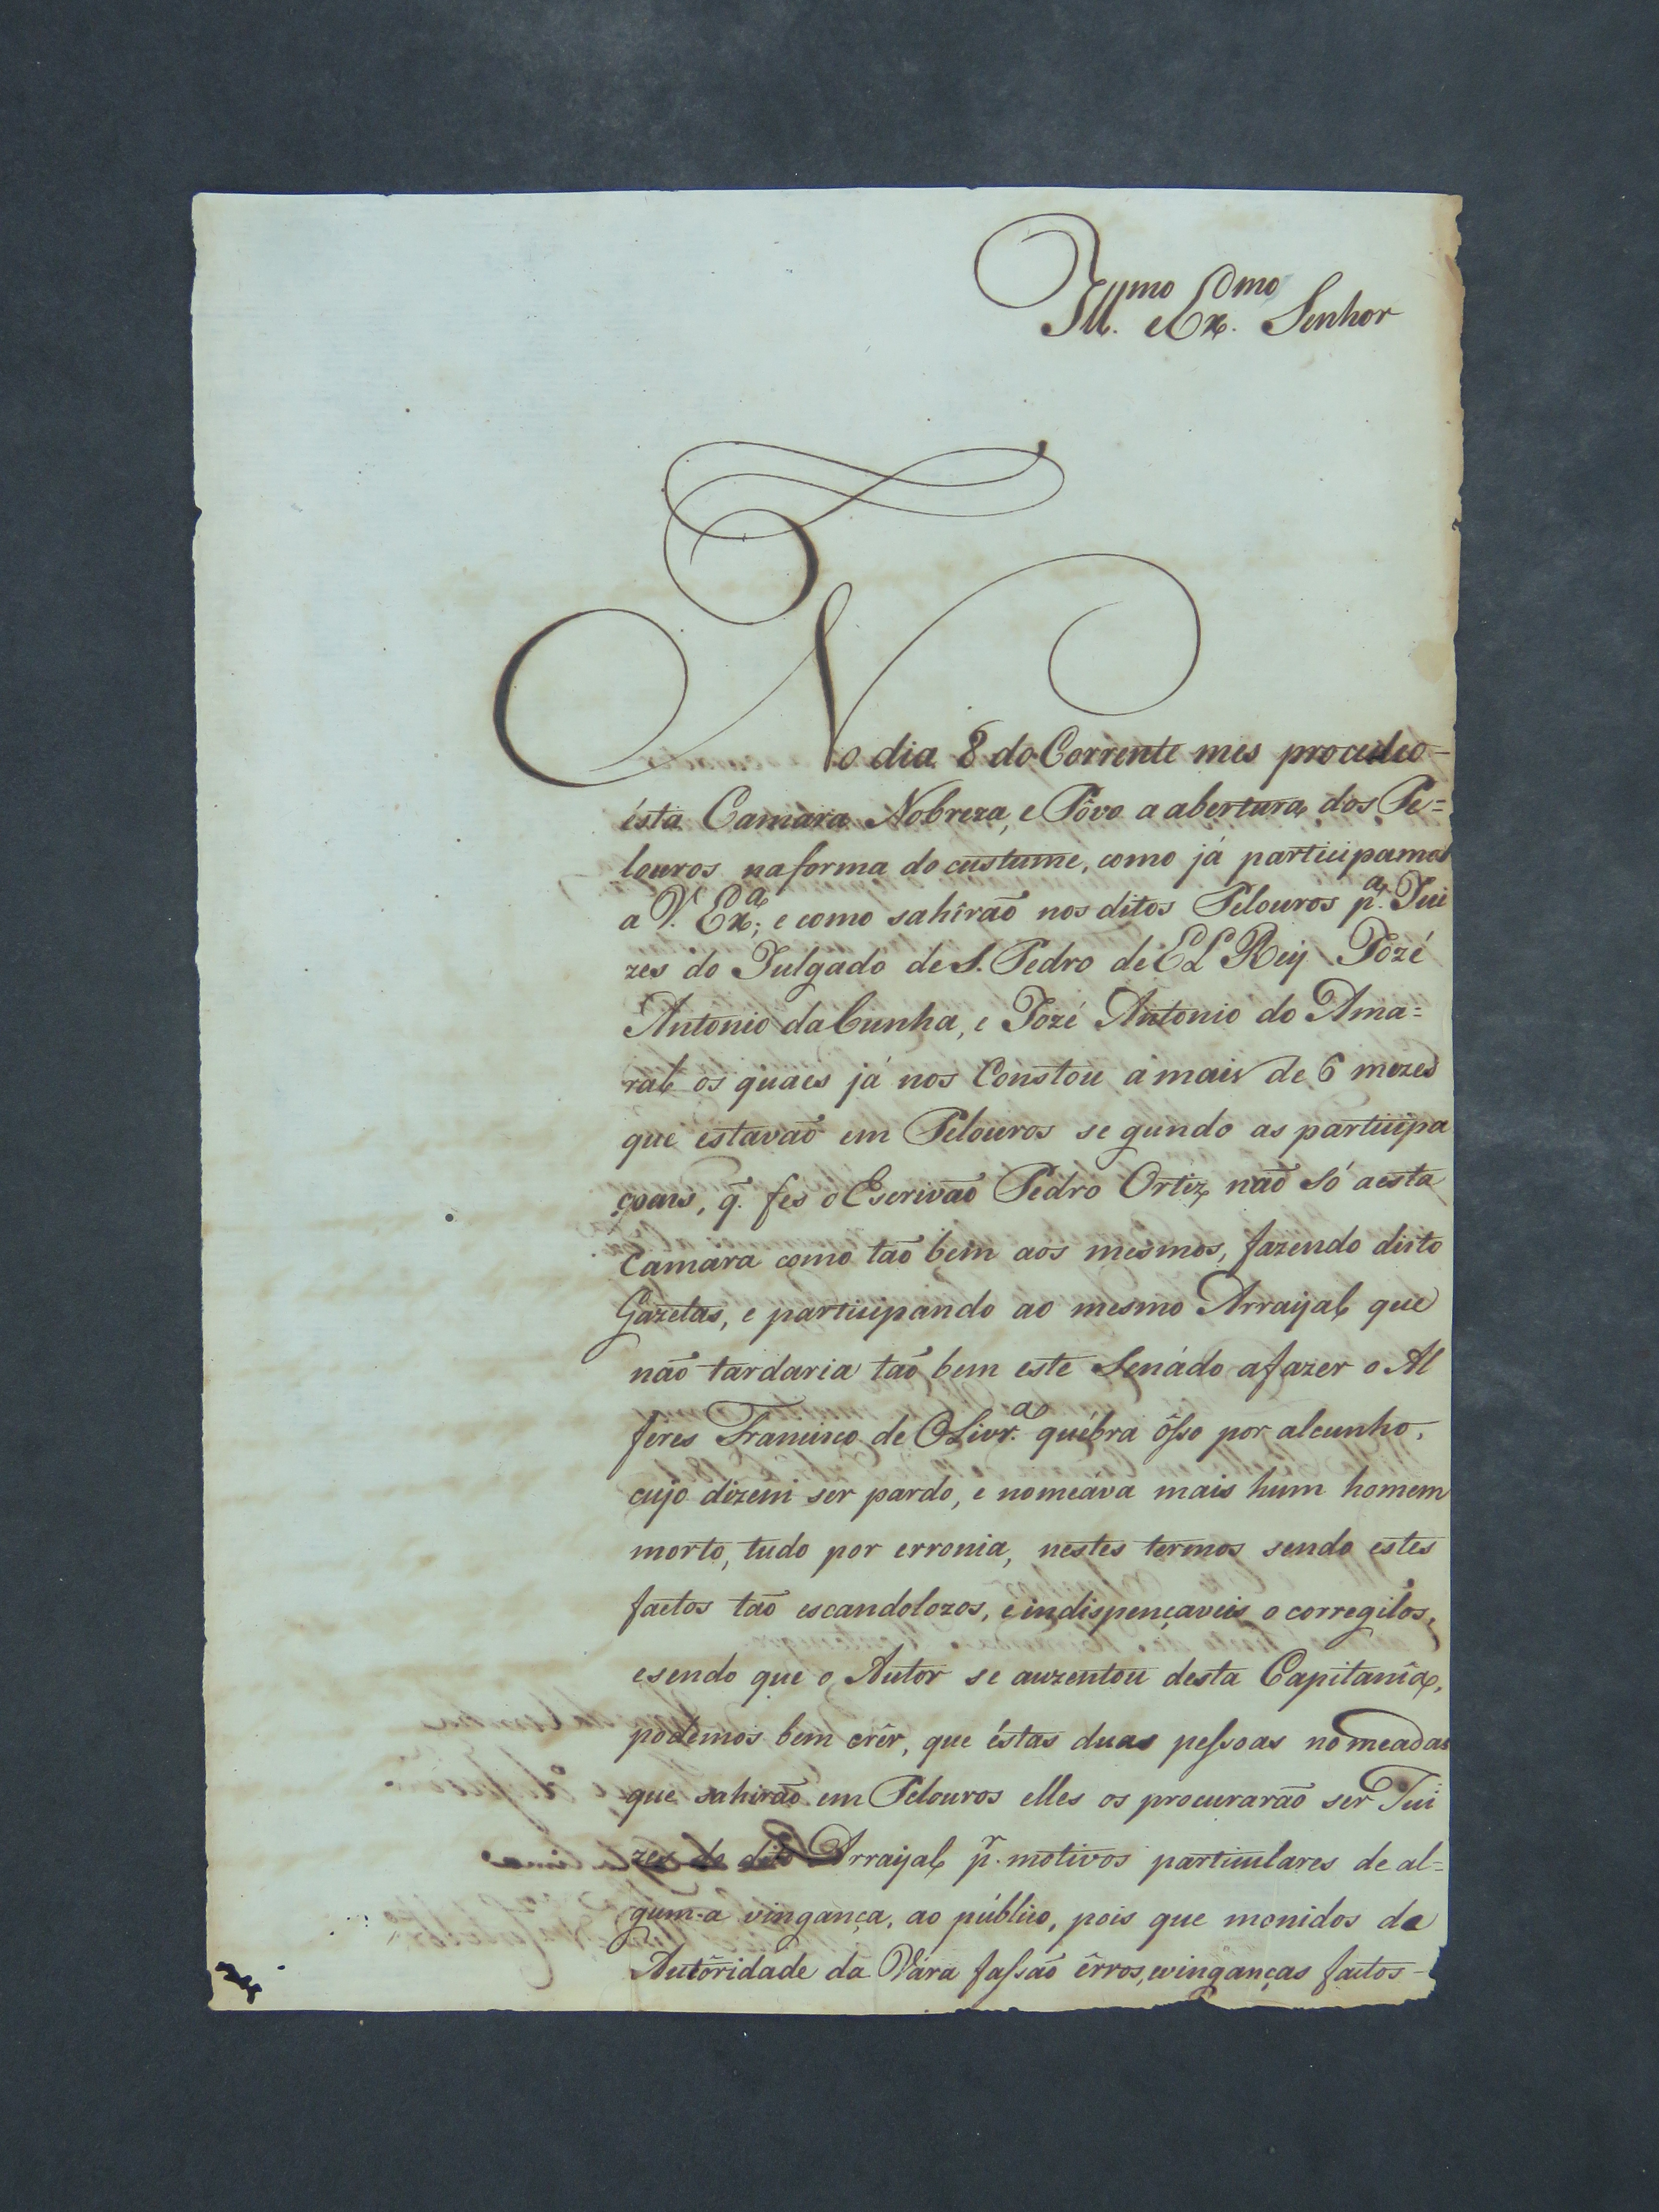 Ill.mo e Ex.mo Senhor
No dia 8 do Corrente mes procedeo-
ésta Camara Nobreza, e Pôvo a abertura dos Pe=
louros na forma do custume, como já participamos
a V. Ex.a; e como sahîraõ nos ditos Pelouros p.a Jui
zes do Julgado de S. Pedro de EL Rey Jozé
Antonio da Cunha, e Jozé Antonio do Ama=
ral os quaes já nos Constou a mais de 6 mezes
que estavaõ em Pelouros se gundo as participa
çoens, q. fes o Escrivaõ Pedro Ortiz naõ só a esta
Camara como taõ bem aos mesmos, fazendo disto
Gazetas, e participando ao mesmo Arraijal que
naõ tardaria taõ bem este Senádo a fazer o Al
feres Francisco de OLivr.a québra ôsso por alcunho,
cujo dizem ser pardo, e nomeava mais hum homem
morto, tudo por erronia, nestes termos sendo estes
factos taõ escandolozos, e indispençaveis o corregilos,
e sendo que o Autor se auzentou desta Capitanîa,
podemos bem crêr, que éstas duas pessoas nomeadas
que sahiraõ em Pelouros elles os procuraraõ ser Jui
zes do dito Arraijal p.r motivos particulares de al=
guma vingança, ao público, pois que monidos da
Autôridade da Vara fassaõ êrros, evinganças factos-